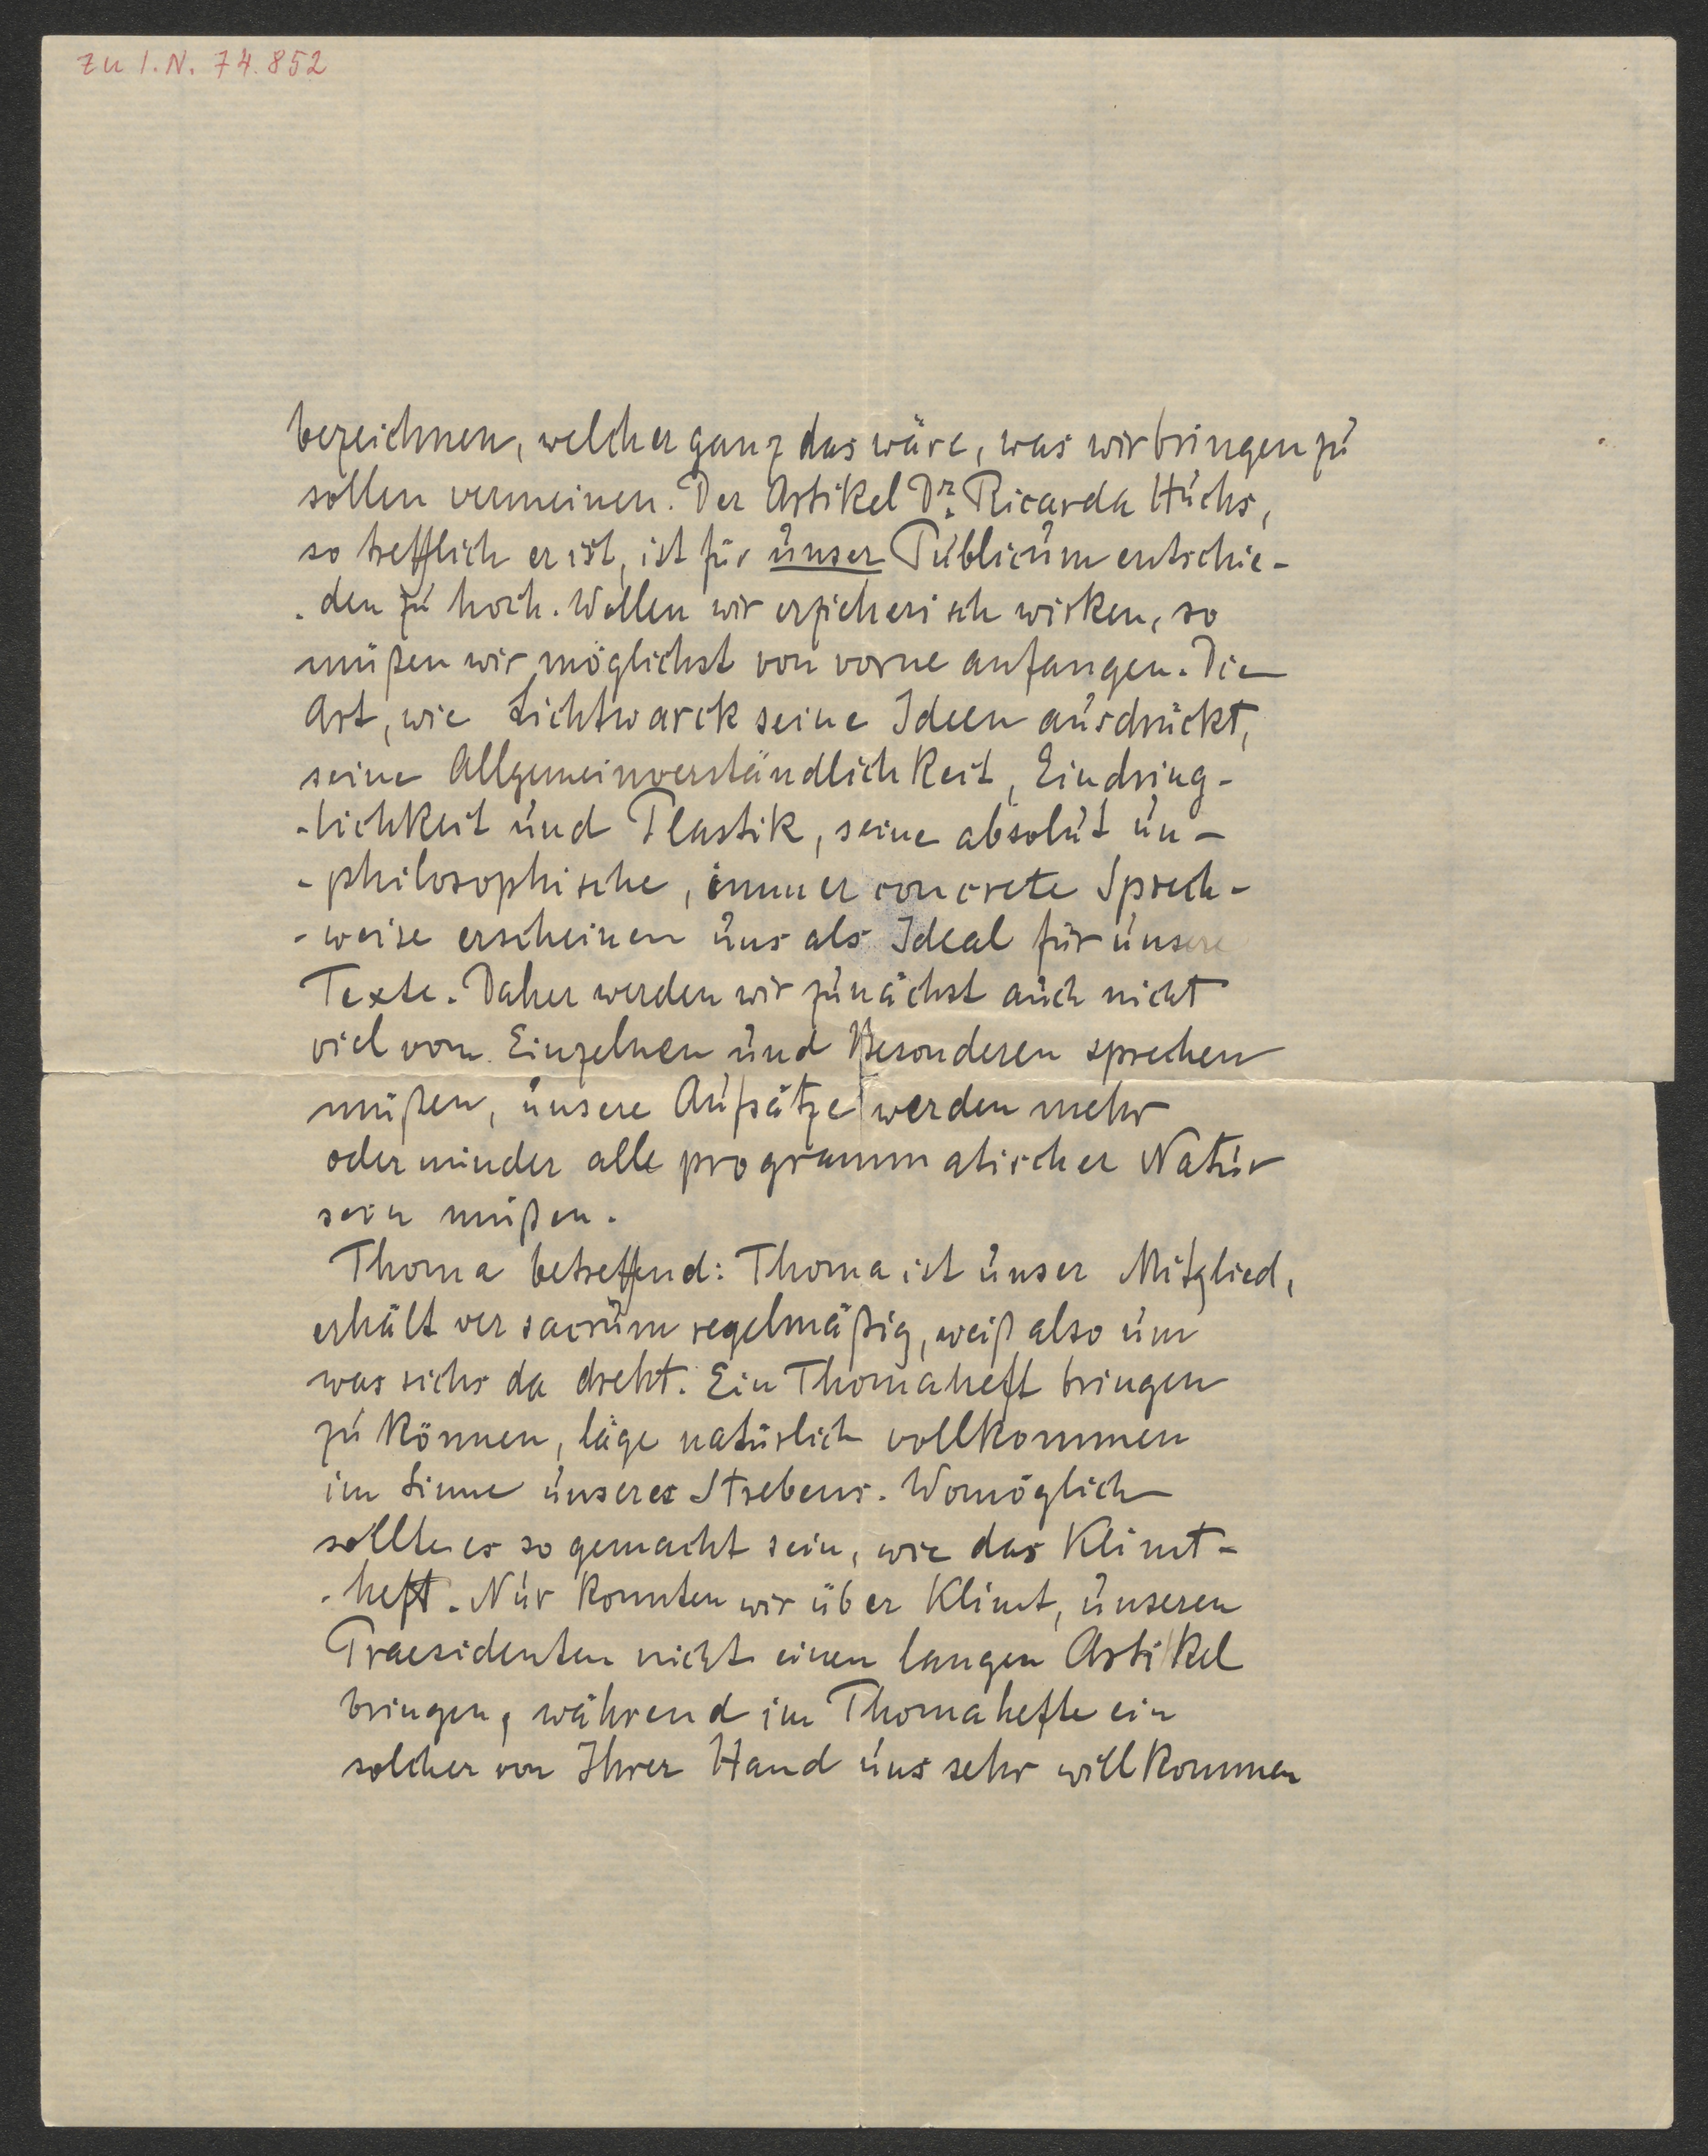 zu I.N. 74.852
bezeichnen, welcher ganz das wäre, was wir bringen zu
sollen vermeinen. Der Artikel Dr. Ricarda Huchs,
so trefflich er ist, ist für unser Publicum entschie-
-den zu hoch. Wollen wir erzieherisch wirken, so
müßen wir möglichst von vorne anfangen. Die
Art, wie Lichtwarck seine Ideen ausdrückt,
seine Allgemeinverständlichkeit, Eindring-
-lichkeit und Plastik, seine absolut un-
-philosophische, immer concrete Sprech-
-weise erscheinen uns als Ideal für unsere
Texte. Daher werden wir zunächst auch nicht
viel vom Einzelnen und Besonderen sprechen
müßen, unsere Aufsätze werden mehr
oder minder alle programmatischer Natur
sein müßen.
Thoma betreffend: Thoma ist unser Mitglied,
erhält ver sacrum regelmäßig, weiß also um
was sichs da dreht. Ein Thomaheft bringen
zu können, läge natürlich vollkommen
im Sinne unseres Strebens. Womöglich
sollte es so gemacht sein, wie das Klimt-
-heft. Nur konnten wir über Klimt, unseren
Praesidenten nicht einen langen Artikel
bringen, während im Thomahefte ein
solcher von Ihrer Hand uns sehr willkommen